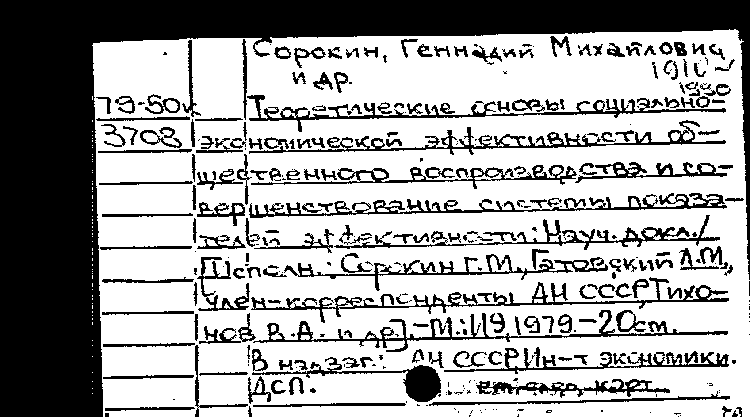 Сорокин, Геннадий Михайлович
1910–
и др.
1990
79-50к Теоретические основы социально-
3708 экономической эффективности об-
щественного воспроизводства и со-
вершенствование системы показа-
телей эффективности: Науч. докл./
[Исполн.: Сорокин Г.М., Гатовский Л.М.,
член-корреспонденты АН СССР, Тихо-
нов В.А. и др.].-М.: ИЭ, 1979.-20см.
В надзаг.: АН СССР, Ин-т экономики.
ДСП. карт.